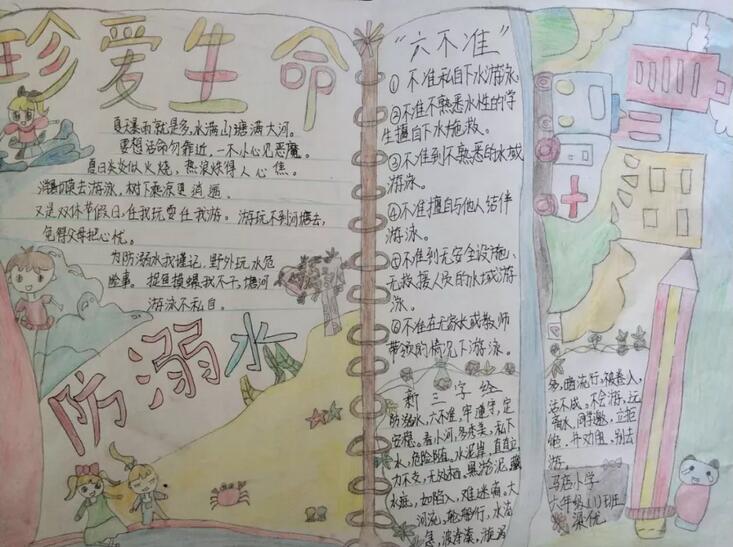 珍爱生命
夏天暴雨就是多,水满山塘满大河。
要想活命勿靠近,一不小心见恶魔。
夏日炎炎似火烧,热浪烘得人心焦。
消暑莫去游泳,树下乘凉更逍遥。
又是双休节假日,任我玩耍任我游。游玩不到河塘去,
免得父母把心忧。
为防溺水我谨记,野外玩水危
险事。捉鱼摸螺我不干,塘河
游泳不私自。
防溺水
“六不准”
①不准私自下水游泳。
②不准不熟悉水性的学
生擅自下水施救。
③不准到不熟悉的水域
游泳。
④不准擅自与他人结伴
游泳。
⑤不准到无安全设施、
无救援人员的水域游
泳。
⑥不准在无家长或教师
带领的情况下游泳。
新三字经
防溺水,六不准,牢遵守,定
安稳。看小河,多秀美,私下
水,危险随。水泥岸,直直立,
力不支,无处
黑淤泥,藏
水底,如陷入,难逃离。大
河流,船舶行,水
急,波涛凑,漩涡
多,暗流行,被卷入,
活不成。不会游,远
离水,同学邀,立拒
绝,并劝
,别去
游。
马店小学
六年级(1)班
梁优